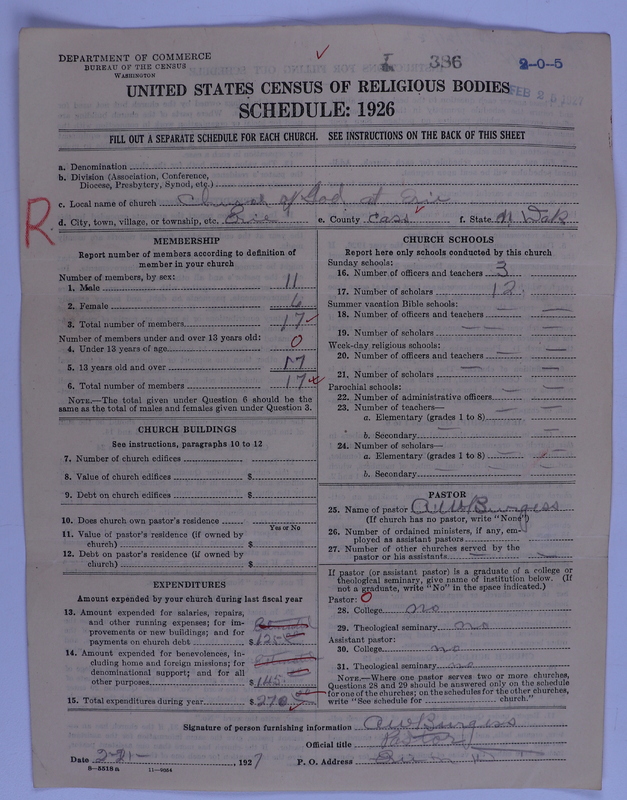 DEPARTMENT OF COMMERCE
BUREAU OF THE CENSUS
WASHINGTON
I 386 2-0-5
FEB 25 1927
UNITED STATES CENSUS OF RELIGIOUS BODIES
SCHEDULE: 1926
FILL OUT A SEPARATE SCHEDULE FOR EACH CHURCH. SEE INSTRUCTIONS ON THE BACK OF THIS SHEET
a. Denomination
b. Division (Association, Conference,
Diocese, Presbytery, Synod, etc.)
c. Local name of church Church of God at Erie
R
d. City, town, village, or township, etc. Erie e. County Cass f. State N. Dak
MEMBERSHIP
Report number of members according to definition of
member in your church
Number of members, by sex:
1. Male 11
2. Female 6
3. Total number of members 17
Number of members under and over 13 years old:
4. Under 13 years of age 0
5. 13 years old and over 17
6. Total number of members 17
NOTE.—The total given under Question 6 should be
same as the total of males and females given under Question 3.
CHURCH BUILDINGS
See instructions, paragraphs 10 to 12
7. Number of church edifices
8. Value of church edifices $
9. Debt on church edifices $
10. Does church own pastor's residence
Yes or No
11. Value of pastor's residence (if owned by
church) $
12. Debt on pastor's residence (if owned by
church) $
EXPENDITURES
Amount expended by your church during last fiscal year
13. Amount expended for salaries, repairs,
and other running expenses; for im-
provements or new buildings; and for
payments on church debt $125
14. Amount expended for benevolences, in-
cluding home and foreign missions; for
denominational support; and for all
other purposes $145
15. Total expenditures during year $270
CHURCH SCHOOLS
Report here only schools conducted by this church
Sunday schools:
16. Number of officers and teachers 3
17. Number of scholars 12
Summer vacation Bible schools:
18. Number of officers and teachers
19. Number of scholars
Week-day religious schools:
20. Number of officers and teachers
21. Number of scholars
Parochial schools:
22. Number of administrative officers
23. Number of teachers—
a. Elementary (grades 1 to 8)
b. Secondary
24. Number of scholars—
a. Elementary (grades 1 to 8)
b. Secondary
PASTOR
25. Name of pastor A W Burgess
(If church has no pastor, write "None")
26. Number of ordained ministers, if any, em-
ployed as assistant pastors
27. Number of other churches served by the
pastor or his assistants
If pastor (or assistant pastor) is a graduate of a college or
theological seminary, give name of institution below. (If
not a graduate, write "No" in the space indicated.)
Pastor: 0
28. College no
29. Theological seminary no
Assistant pastor:
30. College no
31. Theological seminary no
NOTE.—Where one pastor serves two or more churches,
Questions 28 and 29 should be answered only on the schedule
for one of the churches; on the schedules for the other churches,
write "See schedule for church."
Signature of person furnishing information A W Burgess
Official title Pastor
Date 2-21- , 1927 P. O. Address Erie N D
8-5518 a 11-9054